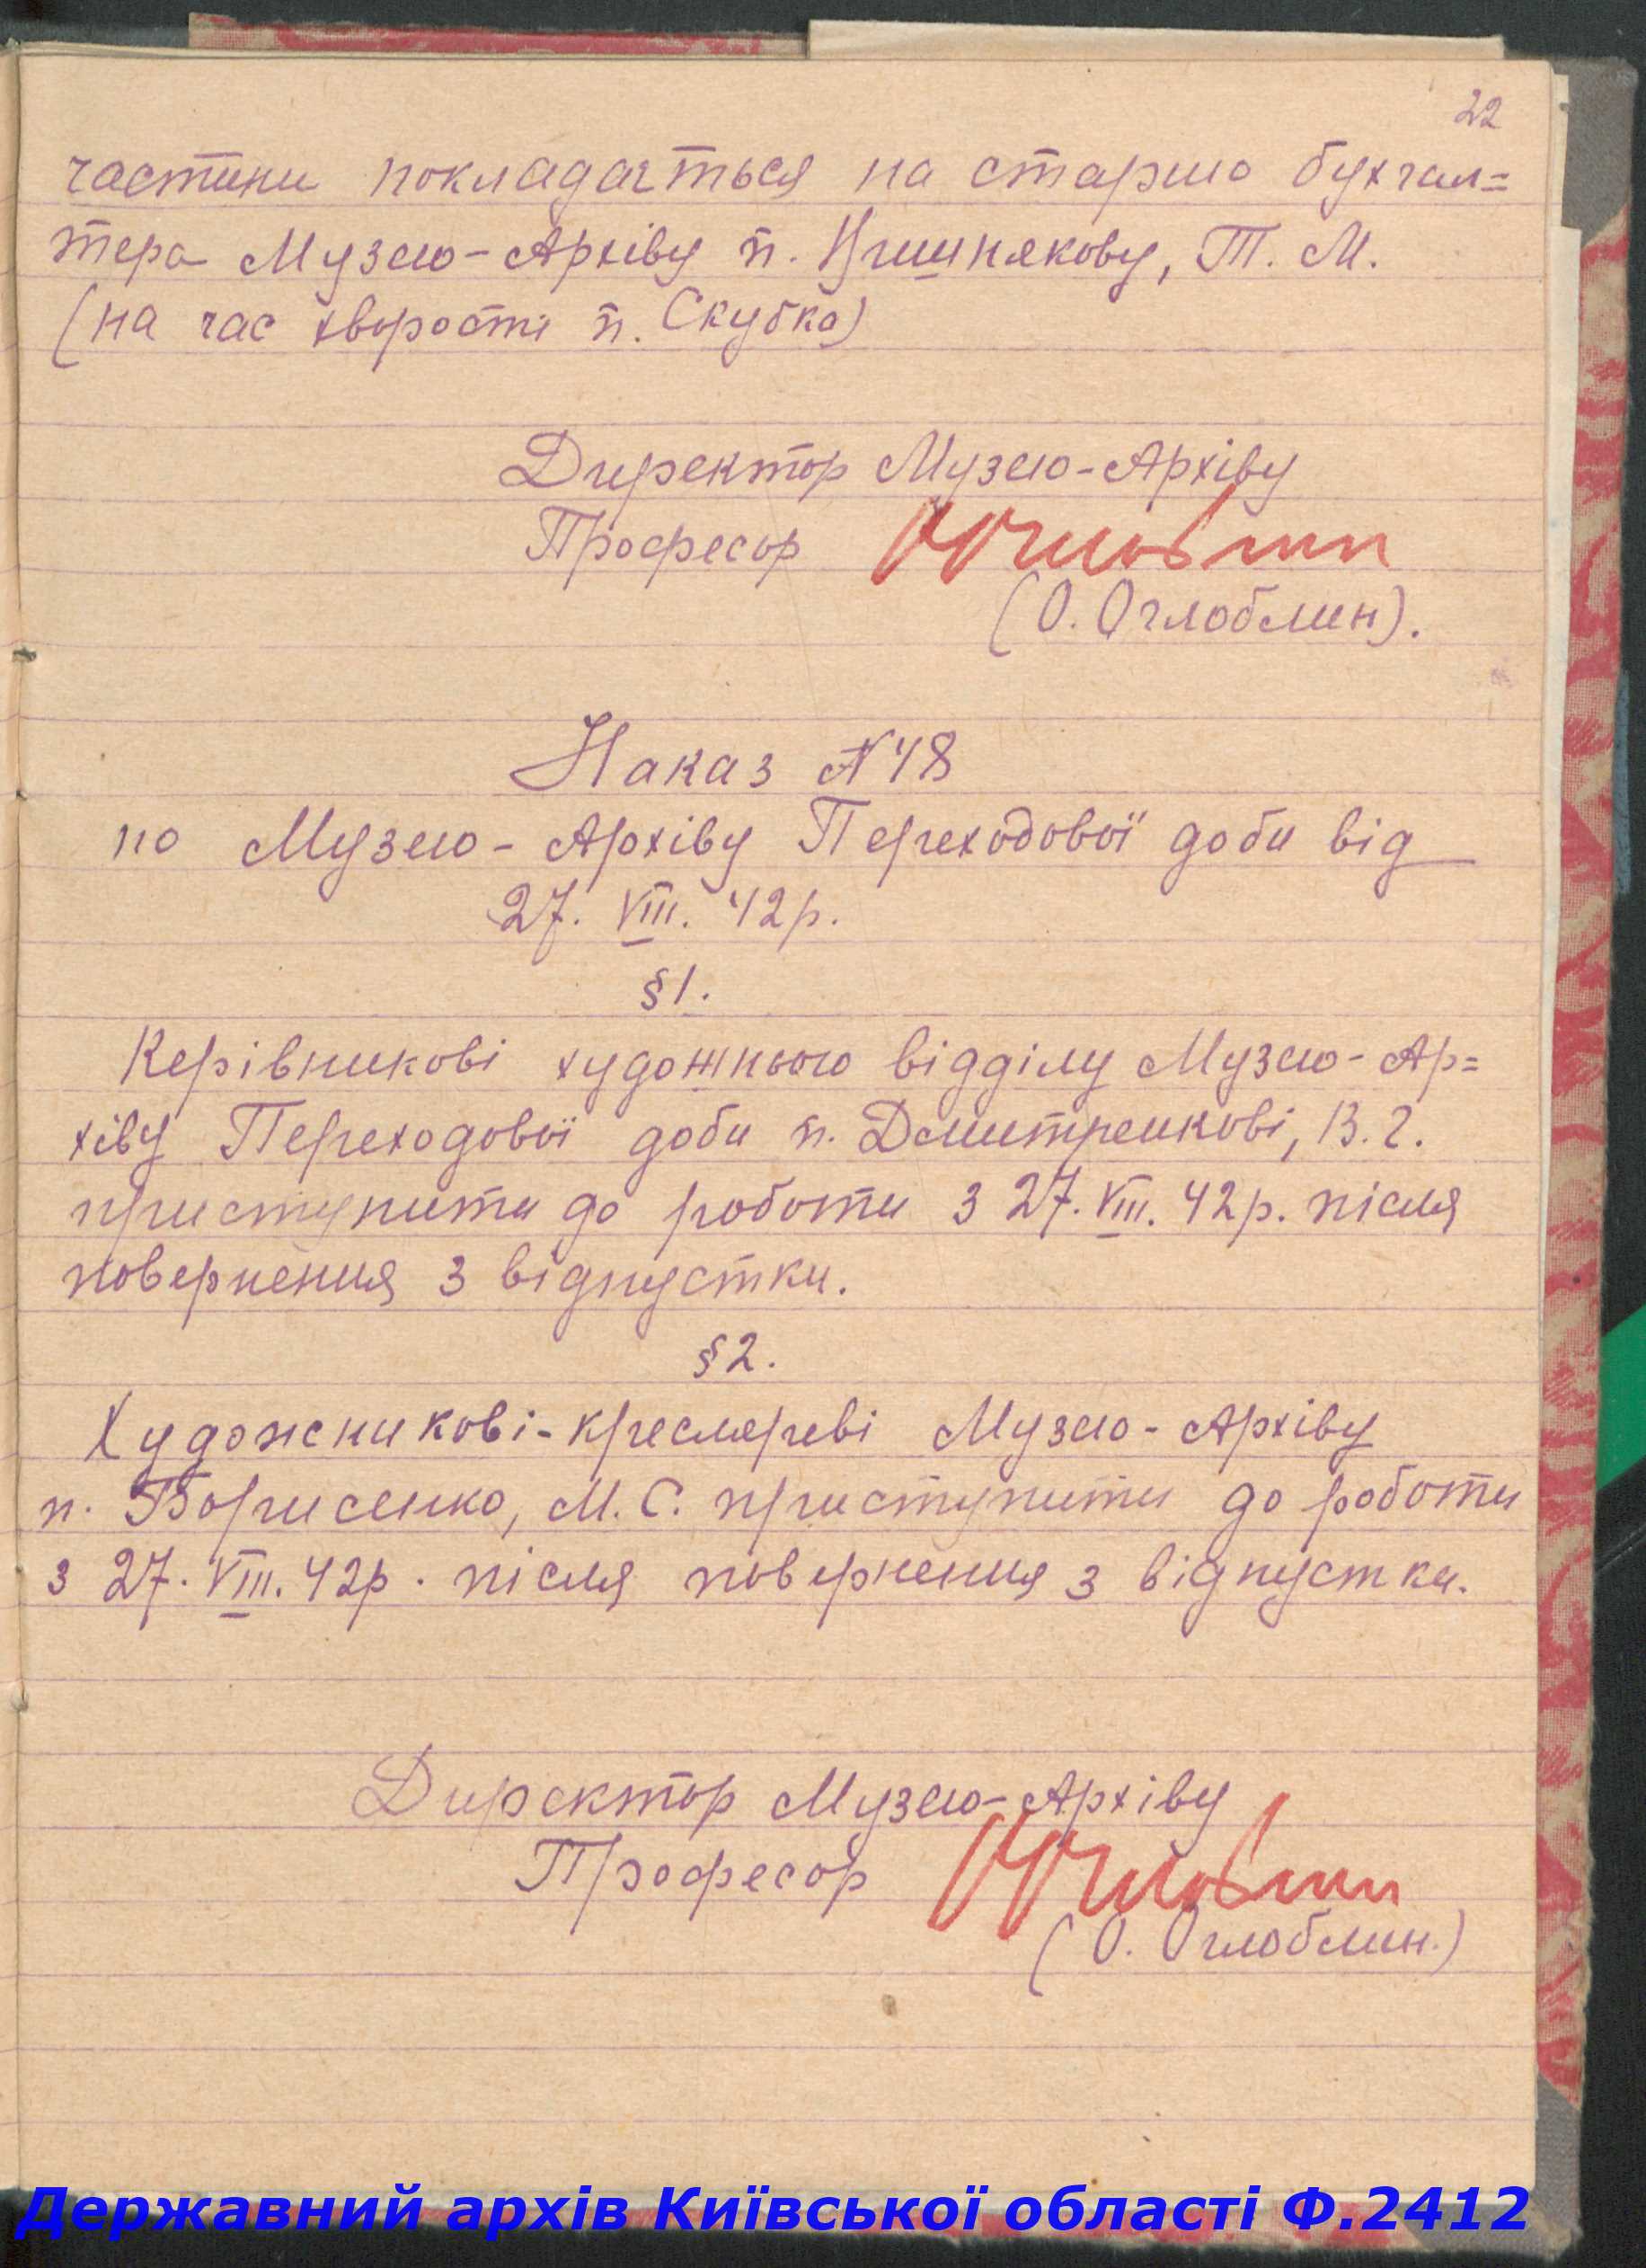 22
частини покладається на старшо бухгал=
тера Музею-Архіву п. Вишнякову, Т. М.
(на час хворости п. Скубка)
Директор Музею-Архіву
Професор
(О. Оглоблин).
Наказ №48
по Музею-Архіву Переходової доби від
27. VIII. 42р.
§1.
Керівникові художнього відділу Музею-Ар=
хіву Переходової доби п. Дмитренкові, В. Г.
приступити до роботи з 27. VIII. 42р. після
повернення з відпустки.
§2.
Художникові-креслереві Музею-Архіву
п. Борисенко, М. С. приступити до роботи
з 27. VIII. 42р. після повернення з відпустки.
Директор Музею-Архіву
Професор
(О. Оглоблин.)
Державний архів Київської області Ф.2412